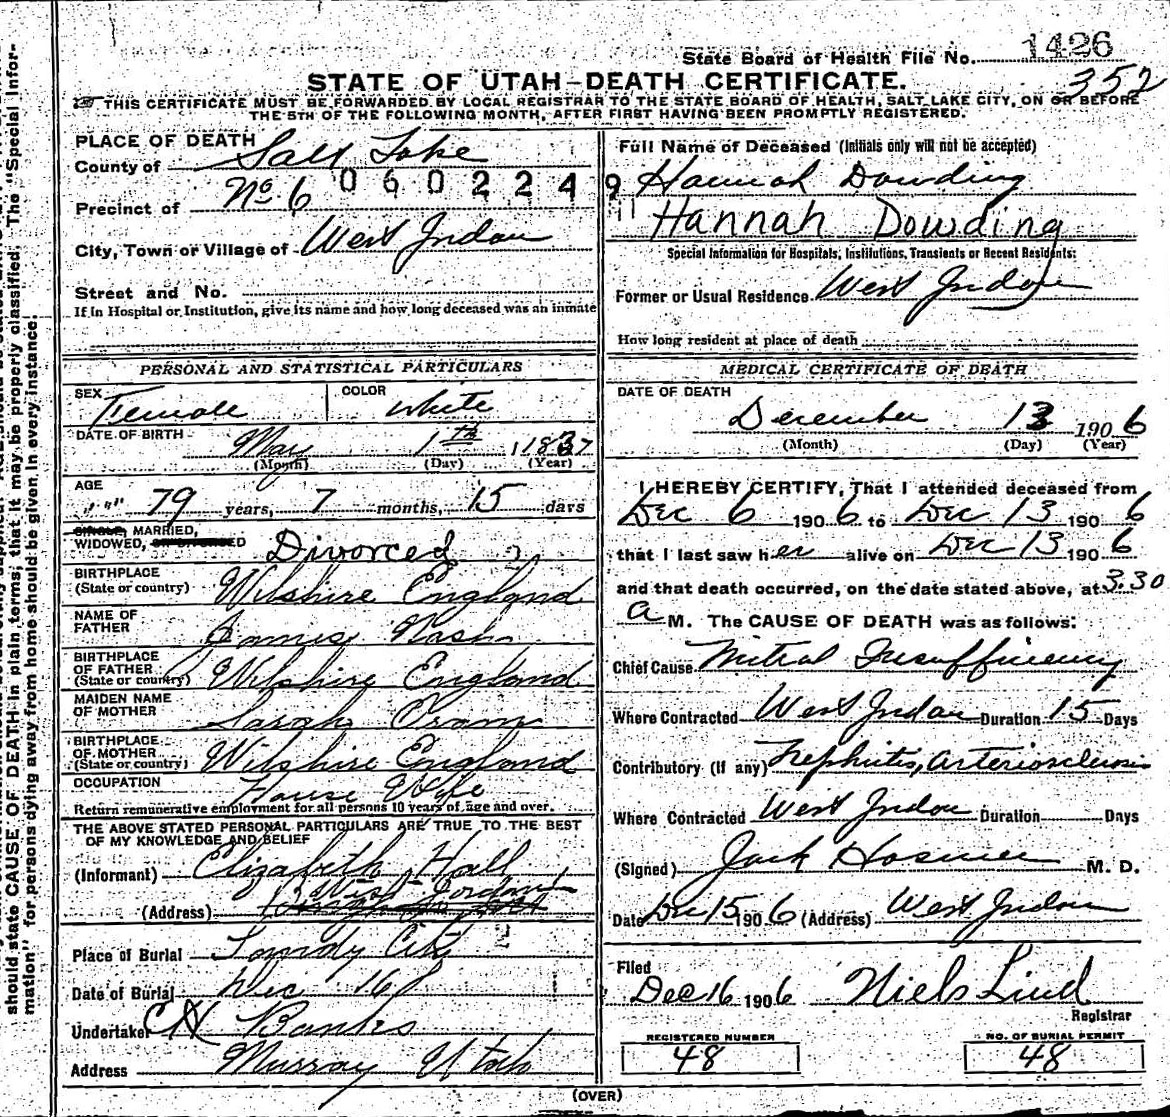 State Board of Health File No. 1426
352
STATE OF UTAH–DEATH CERTIFICATE.
THIS CERTIFICATE MUST BE FORWARDED BY LOCAL REGISTRAR TO THE STATE BOARD OF HEALTH, SALT LAKE CITY, ON OR BEFORE
THE 5TH OF THE FOLLOWING MONTH, AFTER FIRST HAVING BEEN PROMPTLY REGISTERED.
PLACE OF DEATH
County of Salt Lake
0602249
Precinct of No. 6
City, Town or Village of West Jordan
Street and No.
If in Hospital or Institution, give its name and how long deceased was an inmate
PERSONAL AND STATISTICAL PARTICULARS
SEX Female COLOR White
DATE OF BIRTH May 1th
(Month) (Day) (Year)
AGE 79 years, 7 months, 15 days
SINGLE, MARRIED,
WIDOWED, OR DIVORCED Divorced
BIRTHPLACE
(State or country) Wilshire England
NAME OF
FATHER James Nash
BIRTHPLACE
OF FATHER
(State or country) Wilshire England
MAIDEN NAME
OF MOTHER Sarah
BIRTHPLACE
OF MOTHER
(State or country) Wilshire England
OCCUPATION House Wife
Return remunerative employment for all persons 10 years of age and over.
THE ABOVE STATED PERSONAL PARTICULARS ARE TRUE TO THE BEST
OF MY KNOWLEDGE AND BELIEF
(Informant) Elizabeth Hall
(Address) West Jordan
Place of Burial Sandy City
Date of Burial Dec 16
Undertaker Banks
Address Murray Utah
Full Name of Deceased (Initials only will not be accepted)
Hannah Dowding
Hannah Dowding
Special Information for Hospitals, Institutions, Transients or Recent Residents:
Former or Usual Residence West Jordan
How long resident at place of death
MEDICAL CERTIFICATE OF DEATH
DATE OF DEATH
December 13 1906
(Month) (Day) (Year)
I HEREBY CERTIFY, That I attended deceased from
Dec 6 1906 to Dec 13 1906
that I last saw her alive on Dec 13 1906
and that death occurred, on the date stated above, at 3.30
a M. The CAUSE OF DEATH was as follows:
Chief Cause Mitral Insufficiency
Where Contracted West Jordan Duration 15 Days
Contributory (if any) Nephritis, Arteriosclerosis
Where Contracted West Jordan Duration Days
(Signed) Jack Hosmer M. D.
Date Dec 15 1906 (Address) West Jordan
Filed
Dec 16 1906 Niels Lind
Registrar
REGISTERED NUMBER
48
NO. OF BURIAL PERMIT
48
(OVER)
should state CAUSE OF DEATH in plain terms; that it may be properly classified. The "Special Infor-
mation" for persons dying away from home should be given in every instance.